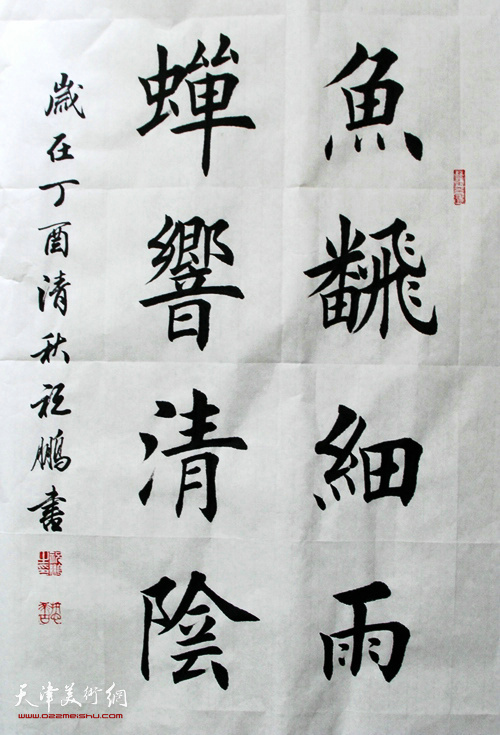 魚飜細雨
蟬響清陰
歲在丁酉清秋祝鵬書
天津美術網
www.022meishu.com